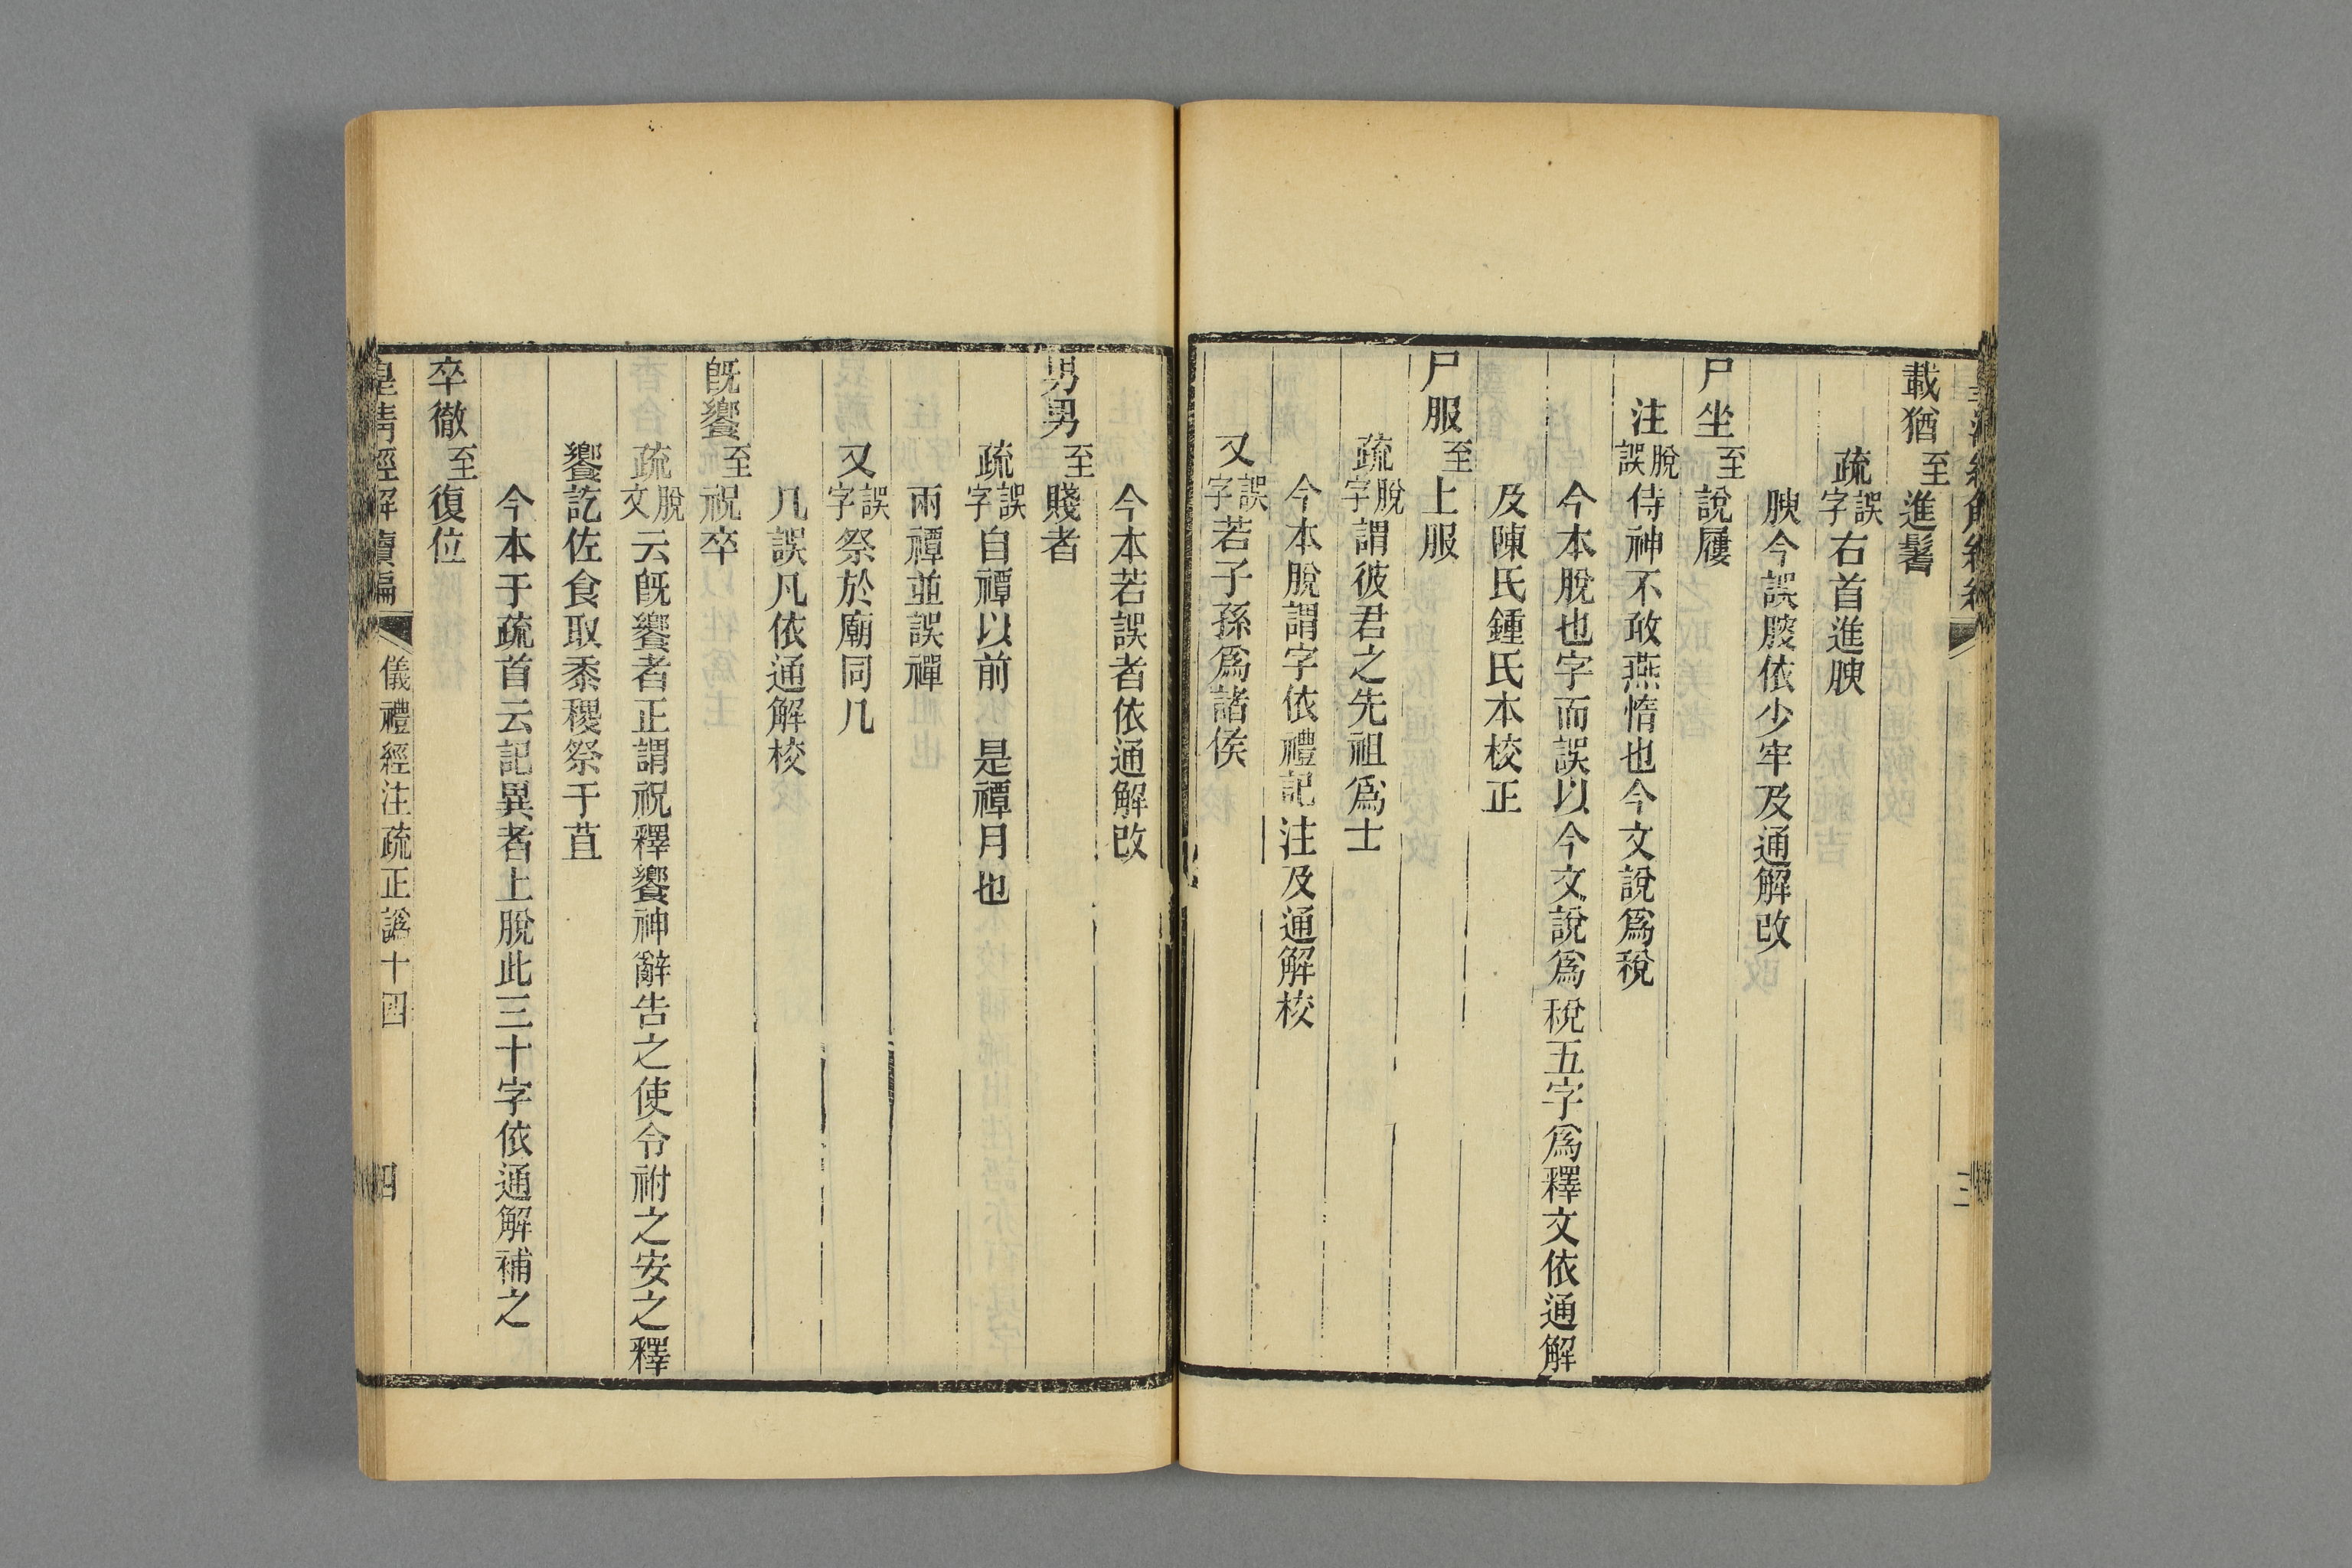 載猶至進鬐
疏誤字右首進腴
腴今誤胺依少牢及通解改
尸坐至說屨
注脫誤侍神不敢燕惰也今文說爲稅
今本脫也字而誤以今文說爲稅五字爲釋文依通解
及陳氏鍾氏本校正
尸服至上服
疏脫字謂彼君之先祖爲士
今本脫謂字依禮記注及通解校
又誤字若子孫爲諸侯
今本若誤者依通解改
男男至賤者
疏誤字自禫以前 是禫月也
兩禫並誤禪
又誤字祭於廟同几
几誤凡依通解校
旣饗至祝卒
疏脫文云旣饗者正謂祝釋饗神辭告之使令祔之安之釋
饗訖佐食取黍稷祭于苴
今本于疏首云記異者上脫此三十字依通解補之
卒徹至復位
皇淸經解續編 儀禮經注疏正譌十四 四